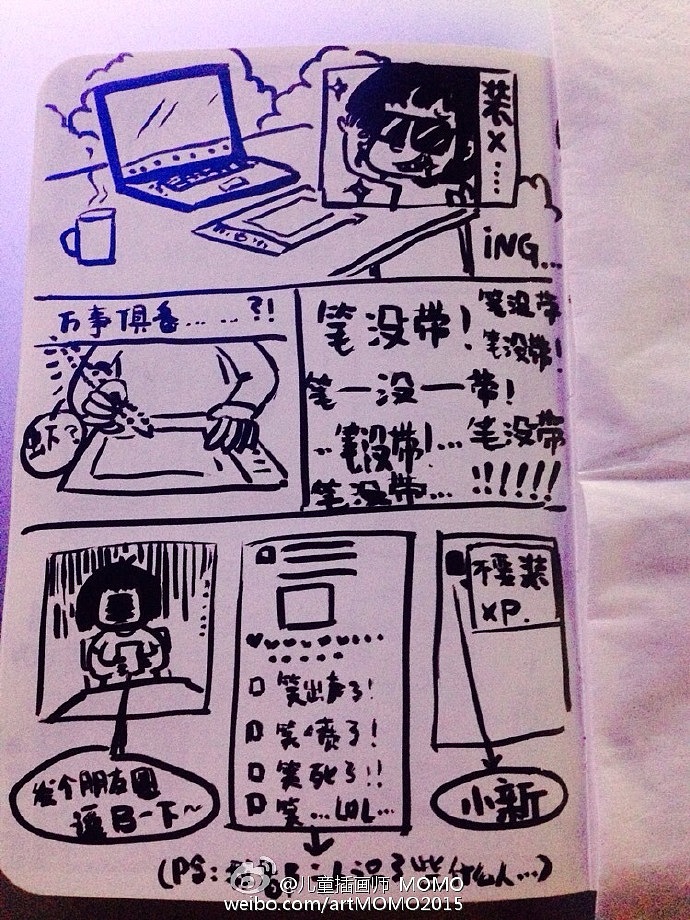 装
X
……
iNG...
万事俱备……?!
笔没带!
笔没带
笔没带!
笔一没一带!
..笔没带!...
笔没带
笔没带...
!!!!!!
不要装
XP.
笑出声了!
笑喷了!
笑死了!!
笑...LOL...
发个朋友圈
一下~
小新
(PS:
认识了些什么人...)
@儿童插画师 MOMO
weibo.com/artMOMO2015